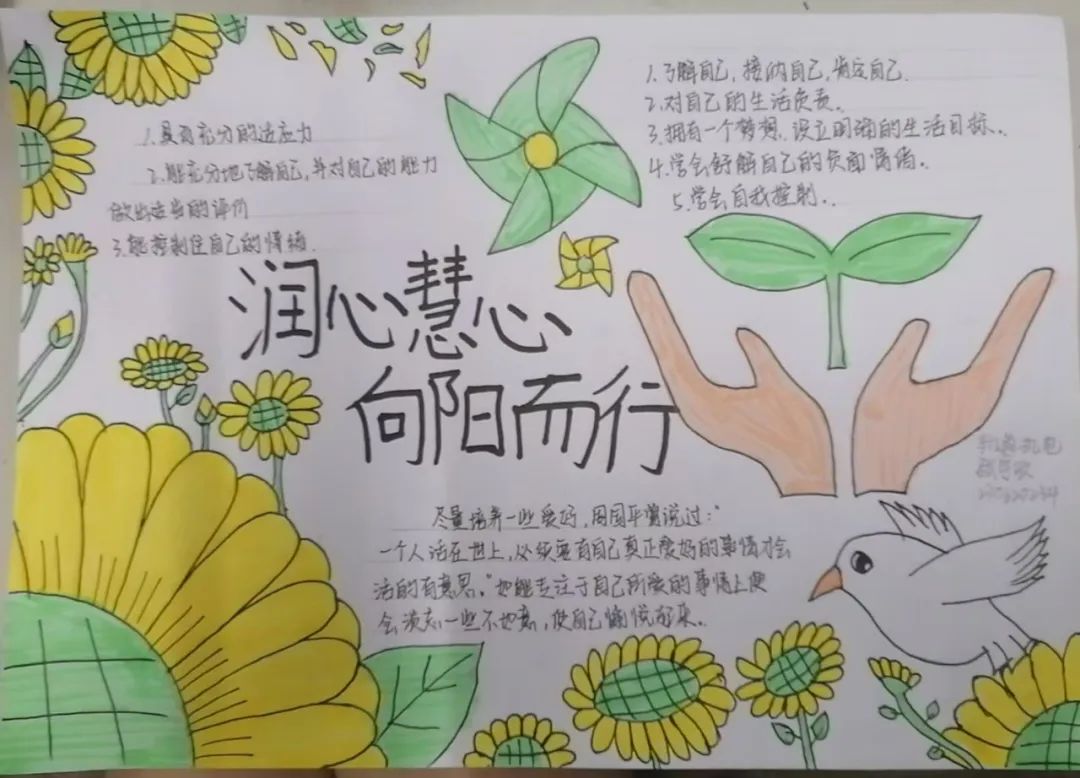 1.具有充分的适应力
2.能充分地了解自己,并对自己的能力
做出适当的评价
3.能控制住自己的情绪.
1.了解自己,接纳自己,肯定自己.
2.对自己的生活负责.
3.拥有一个梦想.设立明确的生活目标..
4.学会舒解自己的负面情绪..
5.学会自我控制..
润心慧心
向阳而行
尽量培养一些爱好,周国平曾说过:"
一个人活在世上,必须要有自己真正爱好的事情才会
活的有意思."如能专注于自己所爱的事情上便
会淡忘一些不如意,使自己愉悦起来..